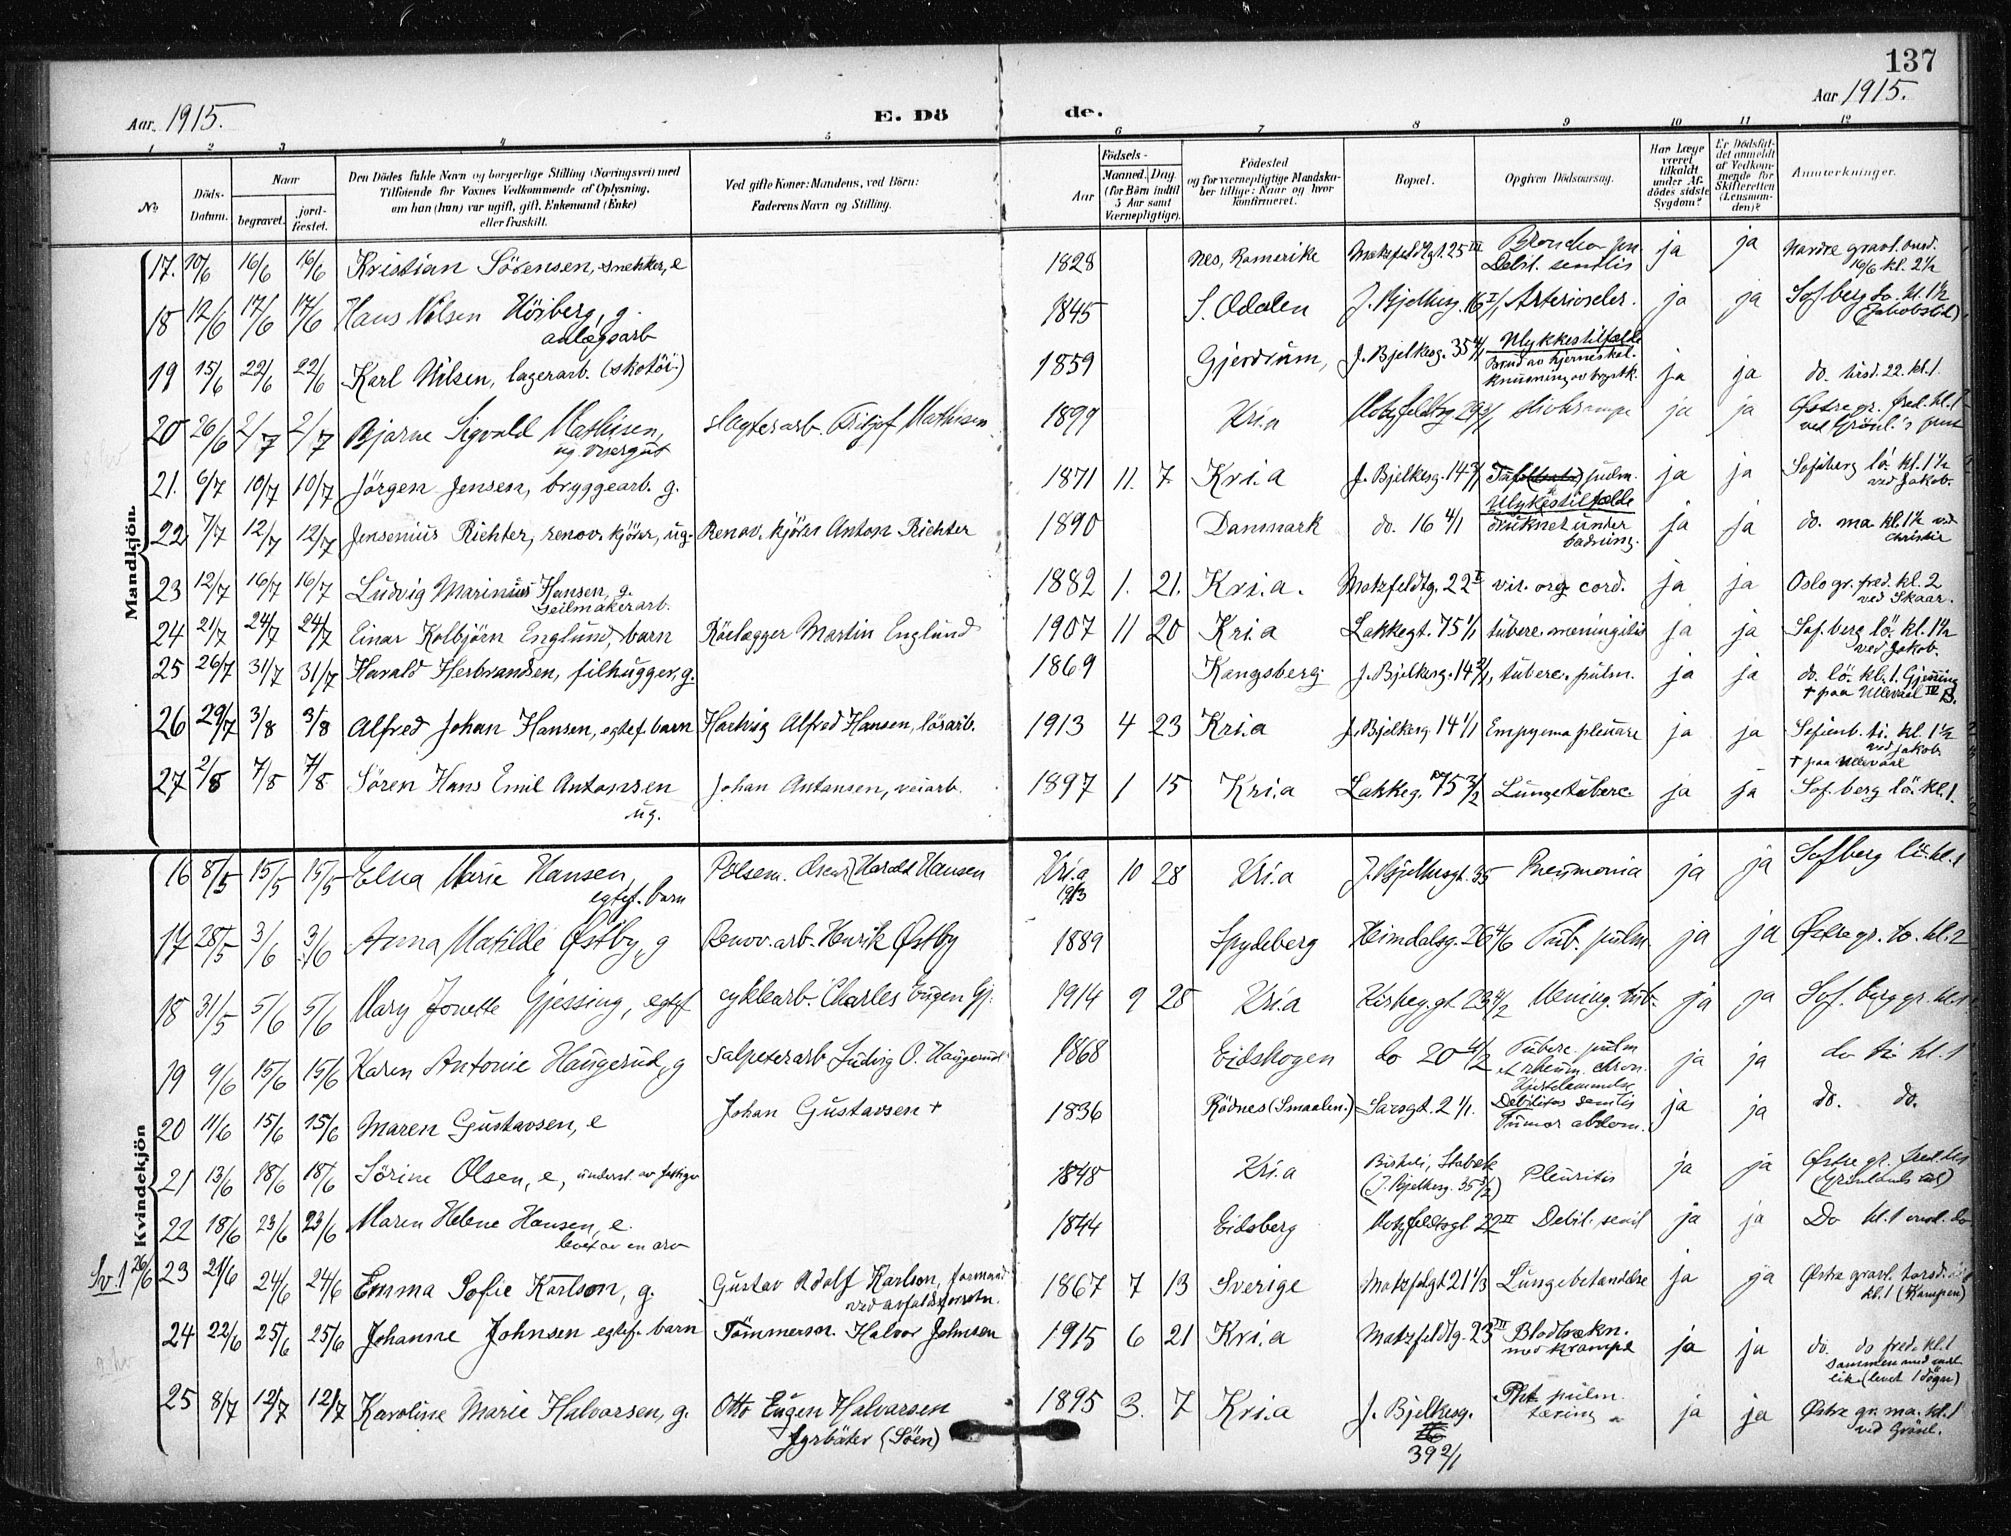 137
Aar 1915.
E. Dö de.
Aar 1915.
1 2 3 4 5 6 7 8 9 10 11 12
No
Döds-Datum.
Naar
begravet.
jord-fæstet.
Den Dödes fulde Navn og borgerlige Stilling (Næringsvei) med
Tilföiende for Voxnes Vedkommende af Oplysning,
om han (hun) var ugift, gift, Enkemand (Enke)
eller fraskilt.
Ved gifte Koner: Mandens, ved Börn:
Faderens Navn og Stilling.
Födsels-
Aar
Maaned. Dag.
(for Börn indtil
5 Aar samt
Værnepligtige).
Födested
og for værnepligtige Mandska-
ber tillige: Naar og hvor
konfirmeret.
Bopæl.
Opgiven Dödsaarsag.
Har Læge
været
tilkaldt
under Af-
dödes sidste
Sygdom?
Er Dödsfal-
det anmeldt
af Vedkom-
mende for
Skifteretten
(Lensman-
den)?
Anmærkninger.
Mandkjön
17. 10/6 16/6 16/6 Kristian Sörensen, snekker, e 1828 Nes, Romerike Motzfeldtgt. 25 III Broncho pn. Debil. senilis ja ja Nordre gravl. onsd. 16/6 kl. 2½
18 12/6 17/6 17/6 Hans Nilsen Höiberg, g. anlægsarb 1845 S. Odalen J. Bjelkesg. 16 I/1 Arterioscler. ja ja Sofberg do. kl. 1½ (Jakobskl)
19 15/6 22/6 22/6 Karl Nilsen, lagerarb. (skotöi.) 1859 Gjerdrum, J. Bjelkesg. 35 4/1 Ulykkestilfælde Brud av hjerneskal. knusning av brystk. ja ja do. tirsd. 22. kl. 1.
20 26/6 2/7 2/7 Bjarne Sigvald Mathisen, ug. visergut Slagterarb. Fritjof Mathisen 1899 Kri.a Motzfeldtg 29 3/1 Stivkrampe ja ja Østre gr. fred. kl. 1 ved Grönl.'s prest
21. 6/7 10/7 10/7 Jörgen Jensen, bryggearb. g. 1871 11. 7. Kri.a J. Bjelkesg. 14 3/1 pulm. ja ja Sofieberg lö. kl. 1½ ved Jakob.
22 7/7 12/7 12/7 Jensenius Richter, renov. kjörer, ug. Renov. kjörer Anton Richter 1890 Danmark do. 16 4/1 Ulykkestilfælde druknet under badning. ja ja do. ma. kl. 1½ ved Christie
23 12/7 16/7 16/7 Ludvig Marinius Hansen, g. seilmakerarb. 1882 1. 21. Kri.a. Motzfeldtg. 22 I vit. org. cord. ja ja Oslo gr. fred. kl. 2 ved Skaar.
24 21/7 24/7 24/7 Einar Kolbjörn Englund, barn Rörlægger Martin Englund 1907 11 20 Kri.a Lakkegt. 75 1/1 tuberc. meningitis ja ja Sof. berg lö. kl. 1½ ved Jakob.
25 26/7 31/7 31/7 Harald Herbrandsen, filhugger, g. 1869 Kongsberg J. Bjelkesg. 14 2/1, tuberc. pulm. ja ja do. lö. kl. 1. + paa Ullevaal IV B.
26 29/7 3/8 3/8 Alfred Johan Hansen, egtef. barn Hartvig Alfred Hansen, lösarb. 1913 4 23 Kri.a J. Bjelkesg 14 1/1 Empyema pleuræ ja ja Sofienb. ti. kl. 1½ ved Jakob. + paa Ullevaal
27 2/8 7/8 7/8 Sören Hans Emil Antonsen ug. Johan Antonsen, veiarb. 1897 1 15 Kri.a Lakkeg. 75 3/2 Lungetuberc. ja ja Sof. berg lö. kl. 1.
Kvindekjön
16 8/5 15/5 15/5 Elna Marie Hansen, egtef. barn Pölsem. Oscar Harald Hansen Kri.a 1913 10 28 Kri.a J. Bjelkesgt. 35 Pneumonia ja ja Sofberg lö. kl. 1
17 28/5 3/6 3/6 Anna Matilde Østby, g Renov. arb. Henrik Østby 1889 Spydeberg Heimdalsg. 26 4/6 Tub. pulm ja ja Østre gr. to. kl. 2
18 31/5 5/6 5/6 Mary Jonette Gjessing, egtef cyklearb. Charles Eugen Gj. 1914 9 25 Kri.a 23 4/2 Mening. tub. ja ja Sof. berg gr. kl. 1
19 9/6 15/6 15/6 Karen Antonie Haugerud, g Salpeterarb Ludvig O. Haugerud 1868 Eidskogen do 20 4/2 Tuberc. pulm et rheum. chron. ja ja do ti kl. 1
20 11/6 15/6 15/6 Maren Gustavsen, e Johan Gustavsen + 1836 Rödnes (Smaalen.) Sarsgt. 2 1/1. Hjertelammelse Debilitas senilis Tumor abdom. ja ja do. do.
21 13/6 18/6 18/6 Sörine Olsen, e, underst. av fattigv 1848 Kri.a Stabek (J. Bjelkesg. 35 3/2) Pleuritis ja ja Østre gr. fred. (Grönlands)
22 18/6 23/6 23/6 Maren Helene Hansen, e. levet av en arv 1844 Eidsberg Motzfeldtsgt 22 II Debil. senil ja ja Do kl. 1 onsd. do
Sv. 1 26/6 23 21/6 24/6 24/6 Emma Sofie Karlson, g. Gustav Adolf Karlson, formand ved asfalt 1867 7 13 Sverige Motzfeldtgt 21 1/3 Lungebetændelse ja ja Østre gravl. torsd. kl. 1 (Kampen)
24 22/6 25/6 25/6 Johanne Johnsen egtef. barn Tömmerm. Halvor Johnsen 1915 6 21 Kri.a Motzfeldtg. 23 III Blodbrækn. med krampe ja ja do. do fred. kl. 1 sammen med lik (levet 1 dögn)
25 8/7 12/7 12/7 Karoline Marie Halvorsen, g. Otto Eugen Halvorsen fyrböter (Söen) 1895 3. 7 Kri.a J. Bjelkesg. 39 2/1 Pht. pulm. tæring ja ja Østre gr. ma. kl. 1 ved Grönl.